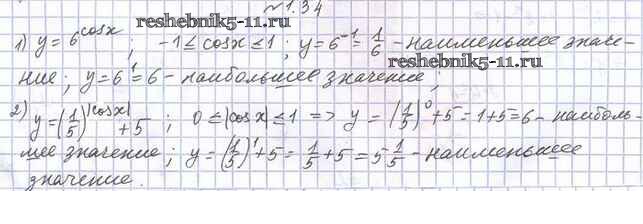 №1.34
reshebnik5-11.ru
1) y = 6^cosx ; -1 ≤ cosx ≤ 1 ; y = 6^-1 = 1/6 - наименьшее значе-
ние ; y = 6^1 = 6 - наибольшее значение ;
2) y = (1/5)^|cosx| + 5 ; 0 ≤ |cosx| ≤ 1 => y = (1/5)^0 + 5 = 1 + 5 = 6 - наиболь-
шее значение ; y = (1/5)^1 + 5 = 1/5 + 5 = 5 1/5 - наименьшее
значение.
reshebnik5-11.ru